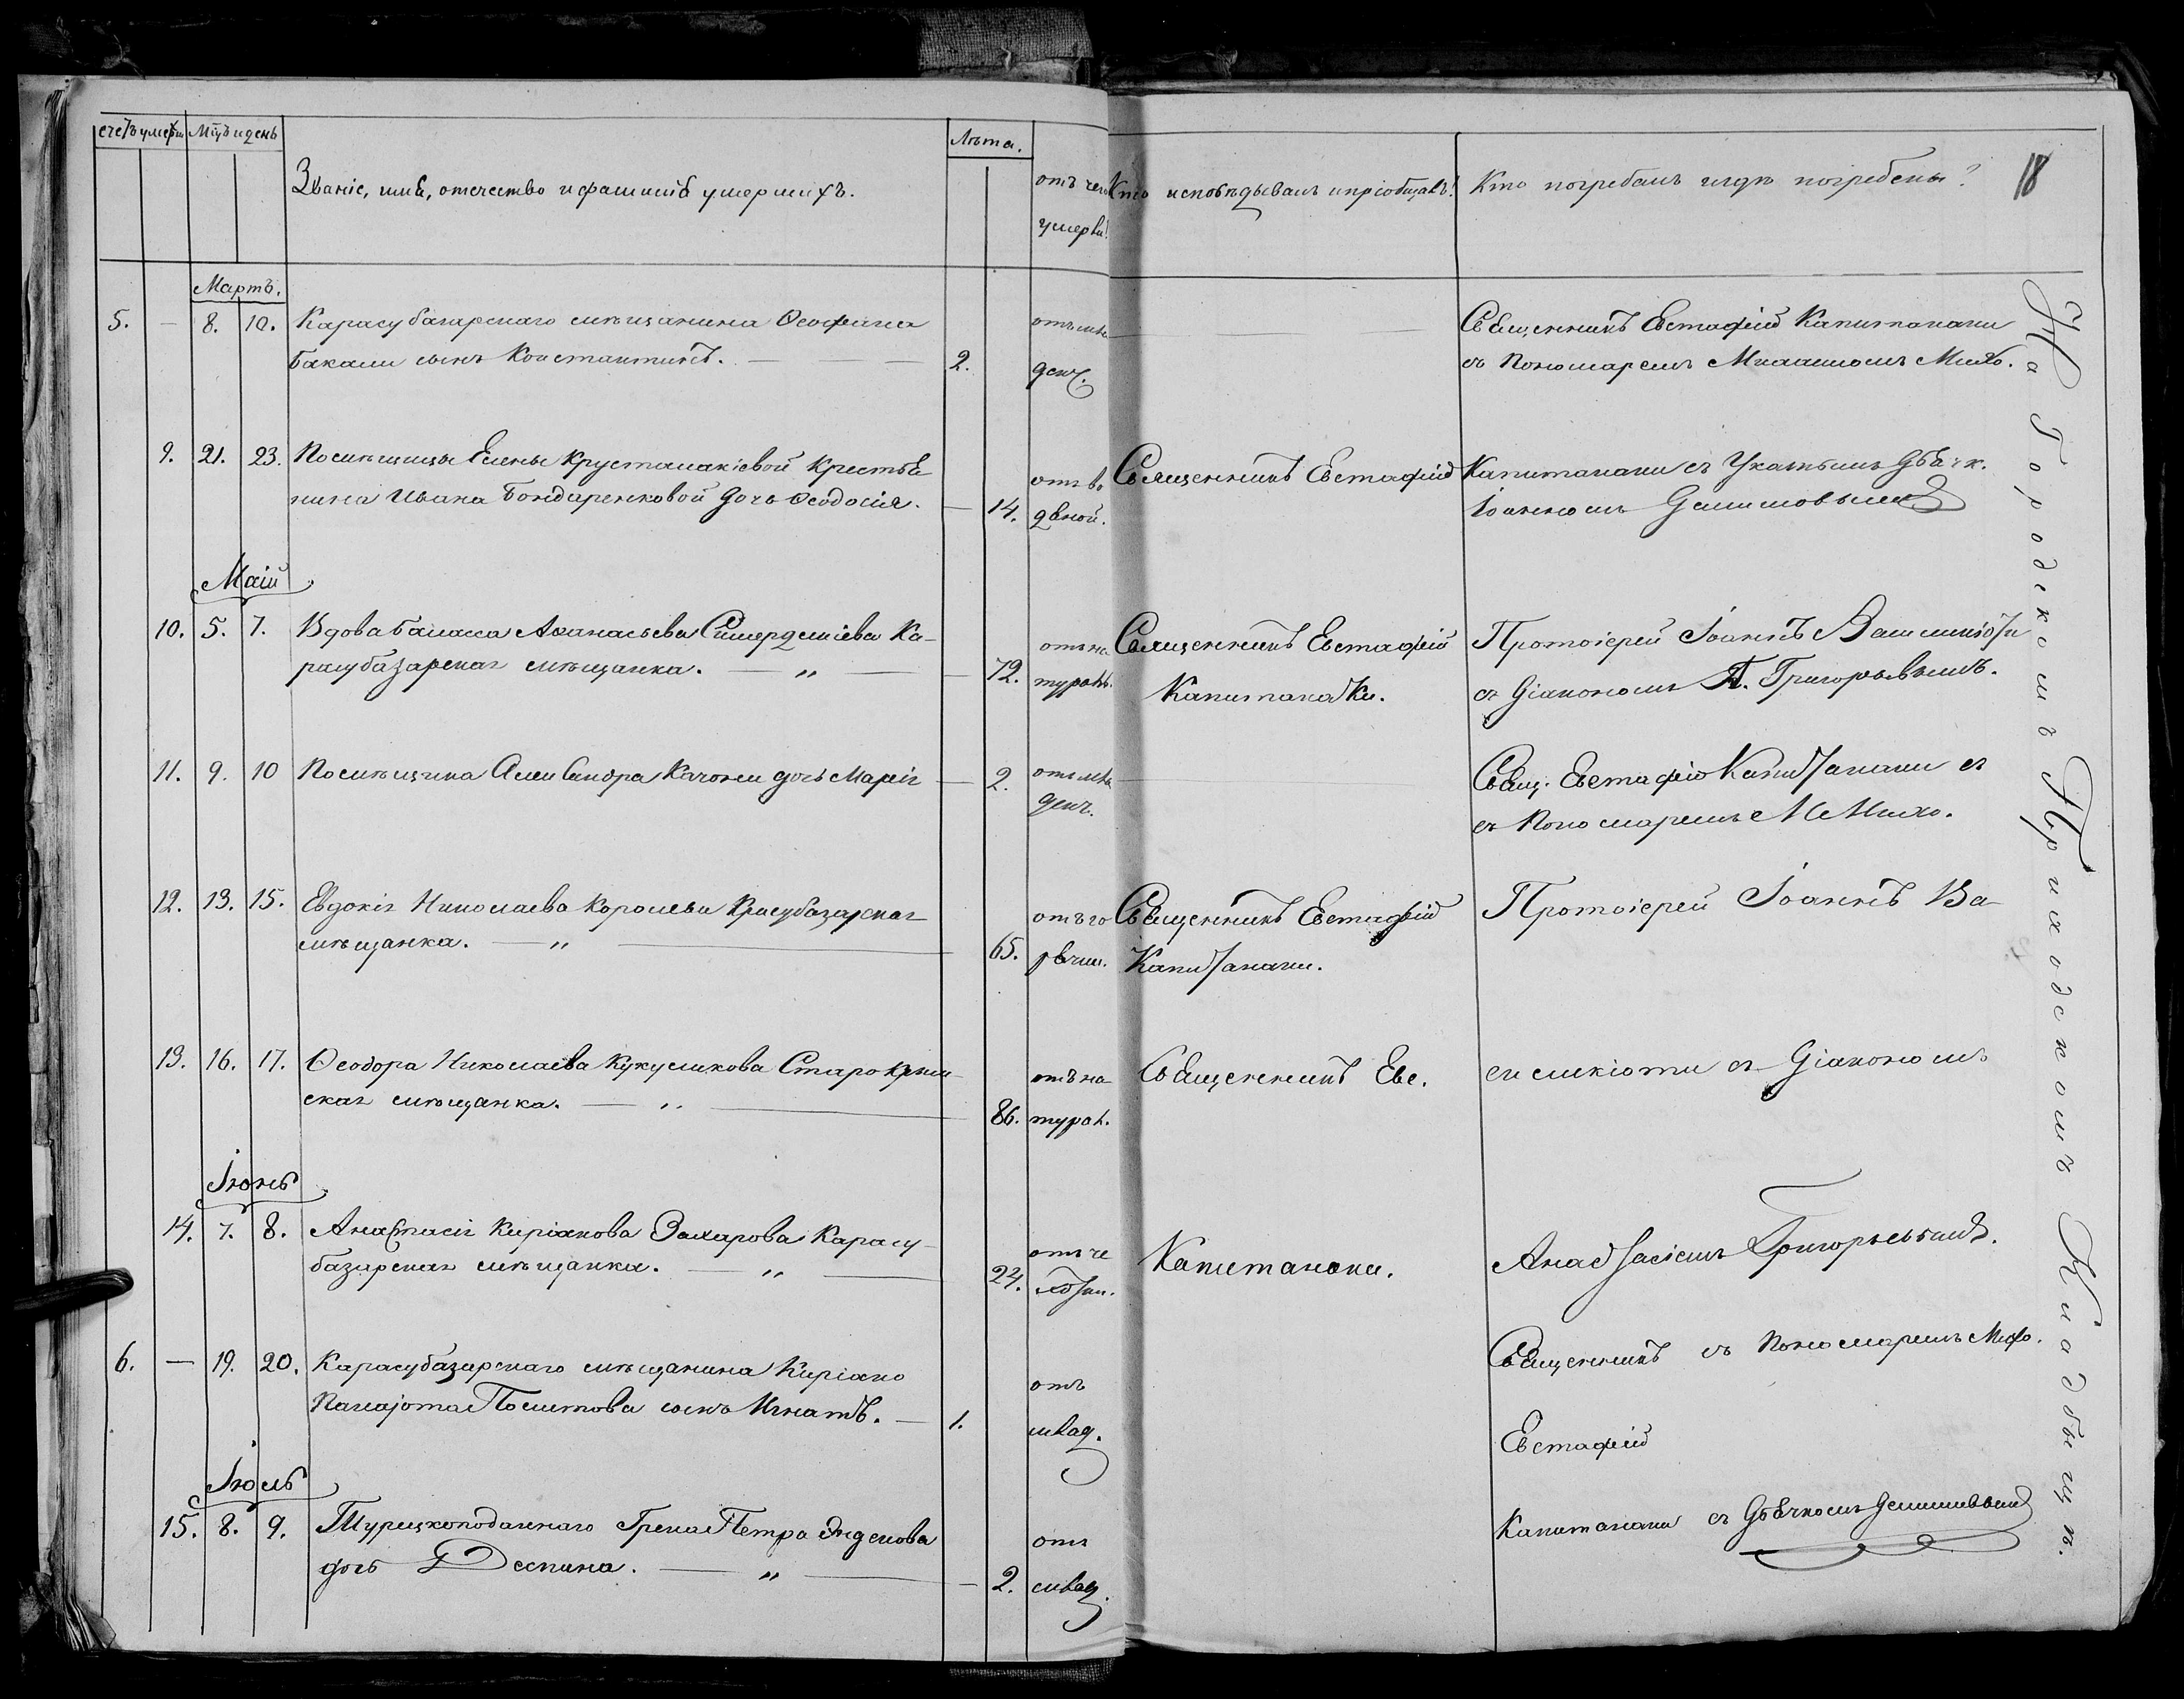 Счетъ умерш. Мцъ и день
Званіе, имя, отечество и фамилія умершихъ.
Лѣта.
отъ чего
умерли?
Кто исповѣдывалъ и пріобщалъ?
Кто погребалъ и гдѣ погребены?
18
Мартъ.
5. — 8. 10. Карасубазарскаго мѣщанина Ѳеофана
Бакали сынъ Константинъ. — 2.
отъ мла
денч.
Священникъ Евстафій Капитанаки
съ Пономаремъ Михаиломъ Михо.
9. 21. 23. Посмѣщицы Елены Крусталакіевой Крестья
нина Ивана Бондаренковой дочь Ѳеодосія. — 14.
отъ во
дяной.
Священникъ Евстафій
Капитанаки съ Указнымъ Дьячк.
Іоанномъ
Маій
10. 5. 7. Вдова Баласа Аѳанасьева Ка-
расубазарская мѣщанка. — „ — 72.
отъ на
турал.
Священникъ Евстафій
Капитанаки.
Протоіерей Іоаннъ
съ Діакономъ А. Григорьевымъ.
11. 9. 10 дочь Марія — 2.
отъ мла
денч.
Свящ. Евстафій Капитанаки съ
съ Пономаремъ М Михо.
12. 13. 15. Евдокія Николаева Королева Крсубазарская
мѣщанка. — „ — 65.
отъ го
рячки.
Священникъ Евстафій
Капитанаки.
Протоіерей Іоаннъ Ва-
13. 16. 17. Ѳеодора Николаева Старокрым
ская мѣщанка. — „ — 86.
отъ на
турал.
Священникъ Евс.
силикіоти съ Діакономъ
Іюнь
14. 7. 8. Анастасія Киріакова Захарова Карасу-
базарская мѣщанка. — „ — 24.
отъ че
хотки.
Капитанаки.
Анастасіемъ Григорьевымъ.
6. — 19. 20. Карасубазарскаго мѣщанина Киріако
Панаіота сынъ Игнатъ. — 1.
отъ
млад.
Священникъ съ Пономаремъ Михо.
Евстафій
Іюль
15. 8. 9. Турецкоподаннаго Грека Петра
дочь Деспина. — „ — 2.
отъ
млад.
Капитанаки съ Дьячкомъ
На Городскомъ Приходскомъ Кладбищѣ.